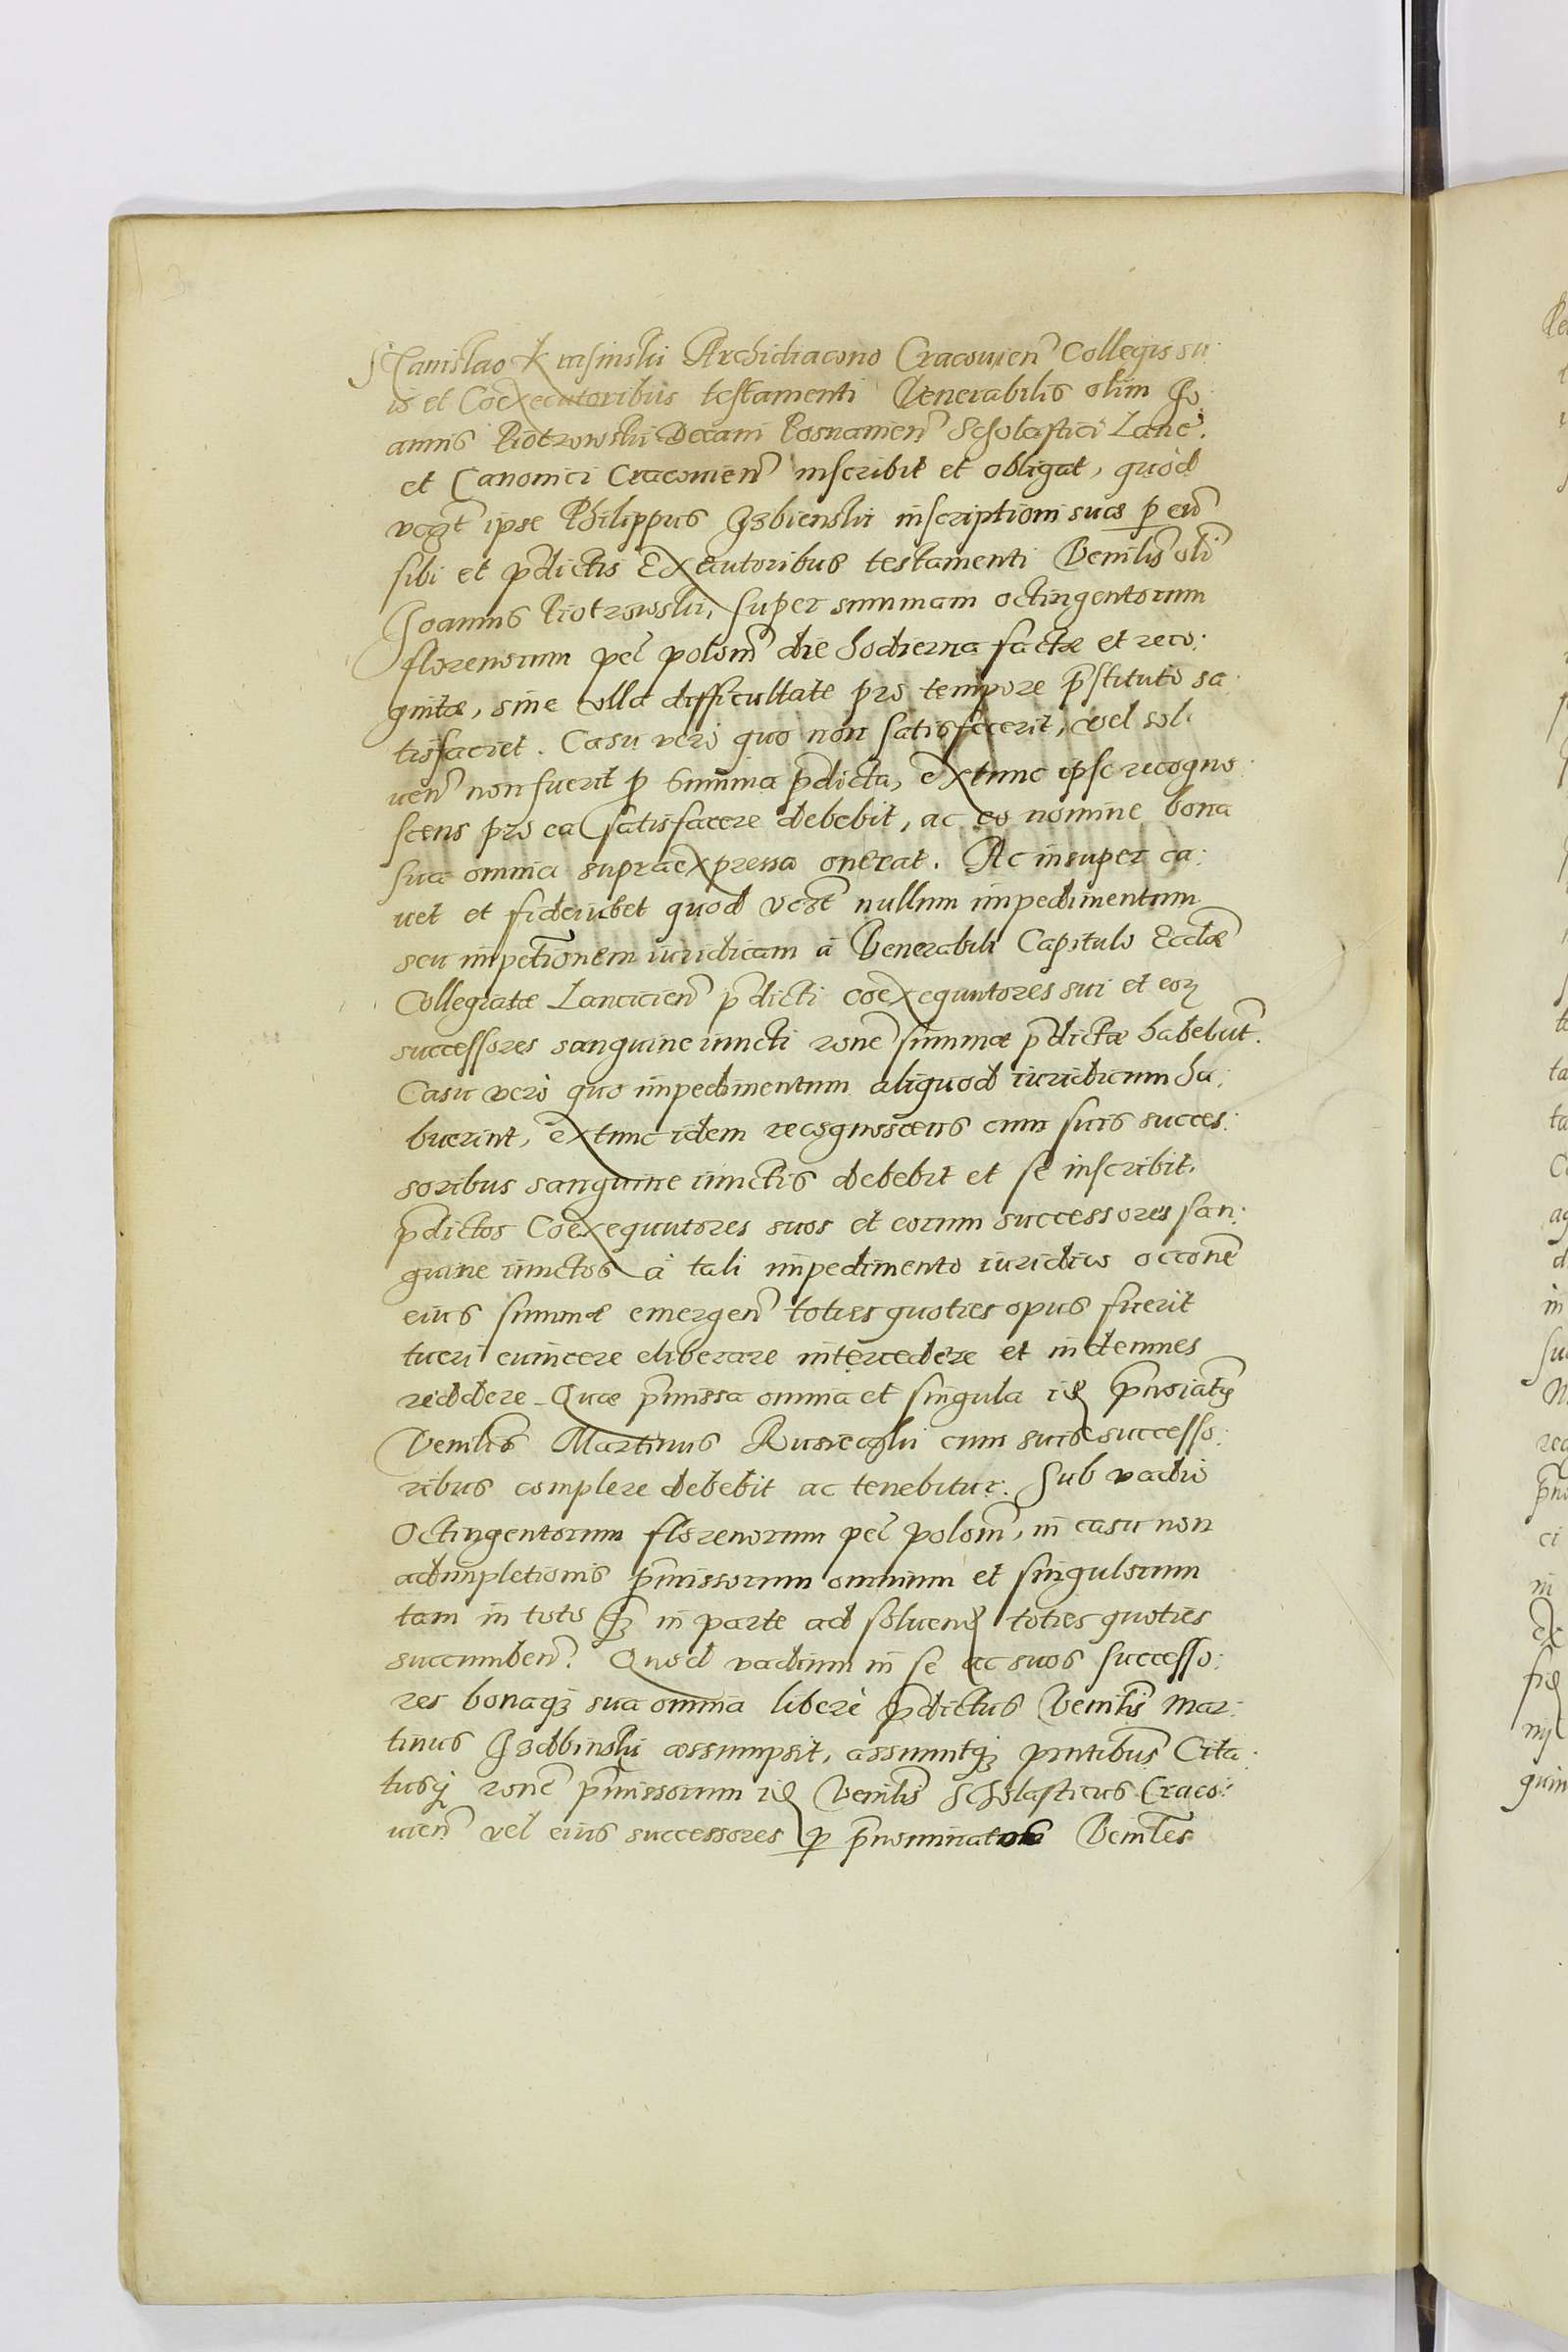 Stanislao Krasinskii Archidiacono Cracouien̄ Collegis su:
is et Coexecutoribus testamenti Venerabilis olim Jo:
annis Piotrowskii Decani Posnanien̄ Scholastici Lanc̄.
et Canonici Cracouien̄ inscribit et obligat, quòd
ipse Philippus Izbienskii inscriptioni suae p eū
sibi et p̄dictis Executoribus testamenti Venīlis olī
Joannis Piotrowskii, super summam octingentorum
florenorum pec̄ polon̄ die hodierna factae et reco:
gnitae, sine ulla difficultate pro tempore p̄stituto sa:
tisfaciet. Casu verò quo non satisfecerit, vel sol:
uen̄ non fuerit p summa p̄dicta, extunc ipse recogno:
scens pro ea satisfacere debebit, ac eo nomine bona
sua omnia supraexpressa onerat. Ac insuper ca:
uet et fideiubet quod nullum impedimentum
seu impetīonem iuridicam à Venerabili Capitulo Eccliae
Collegiatae Lancicien̄ p̄dicti coexequutores sui et eoꝝ
successores sanguine iuncti rōne summae p̄dictae habebūt.
Casu verò quo impedimentum aliquod iuridicum ha:
buerint, extunc idem recognoscens cum suis succes:
soribus sanguine iunctis debebit et se inscribit.
p̄dictos Coexequutores suos et eorum successores san:
guine iunctos à tali impedimento iuridico occōne
eius summae emergen̄ toties quoties opus fuerit
tueri euincere eliberare intercedere et indemnes
reddere. Quae p̄missa omnia et singula
Venīlis Martinus cum suis successo:
ribus complere debebit ac tenebitur. Sub vadio
Octingentorum florenorum pec̄ polon̄, in casu non
adimpletionis p̄missorum omnium et singulorum
tam in toto in parte ad soluen̄ toties quoties
succumben̄. Quod vadium in se ac suos successo:
res bonaqꝫ sua omnia liberè p̄dictus Venīlis Mar:
tinus Izdbinskii assumpsit, assumitqꝫ pn̄tibus Cita:
tusqꝫ rōne p̄missorum Venīlis Scholasticus Craco:
uien̄ vel eius successores p p̄nominatos Venīles